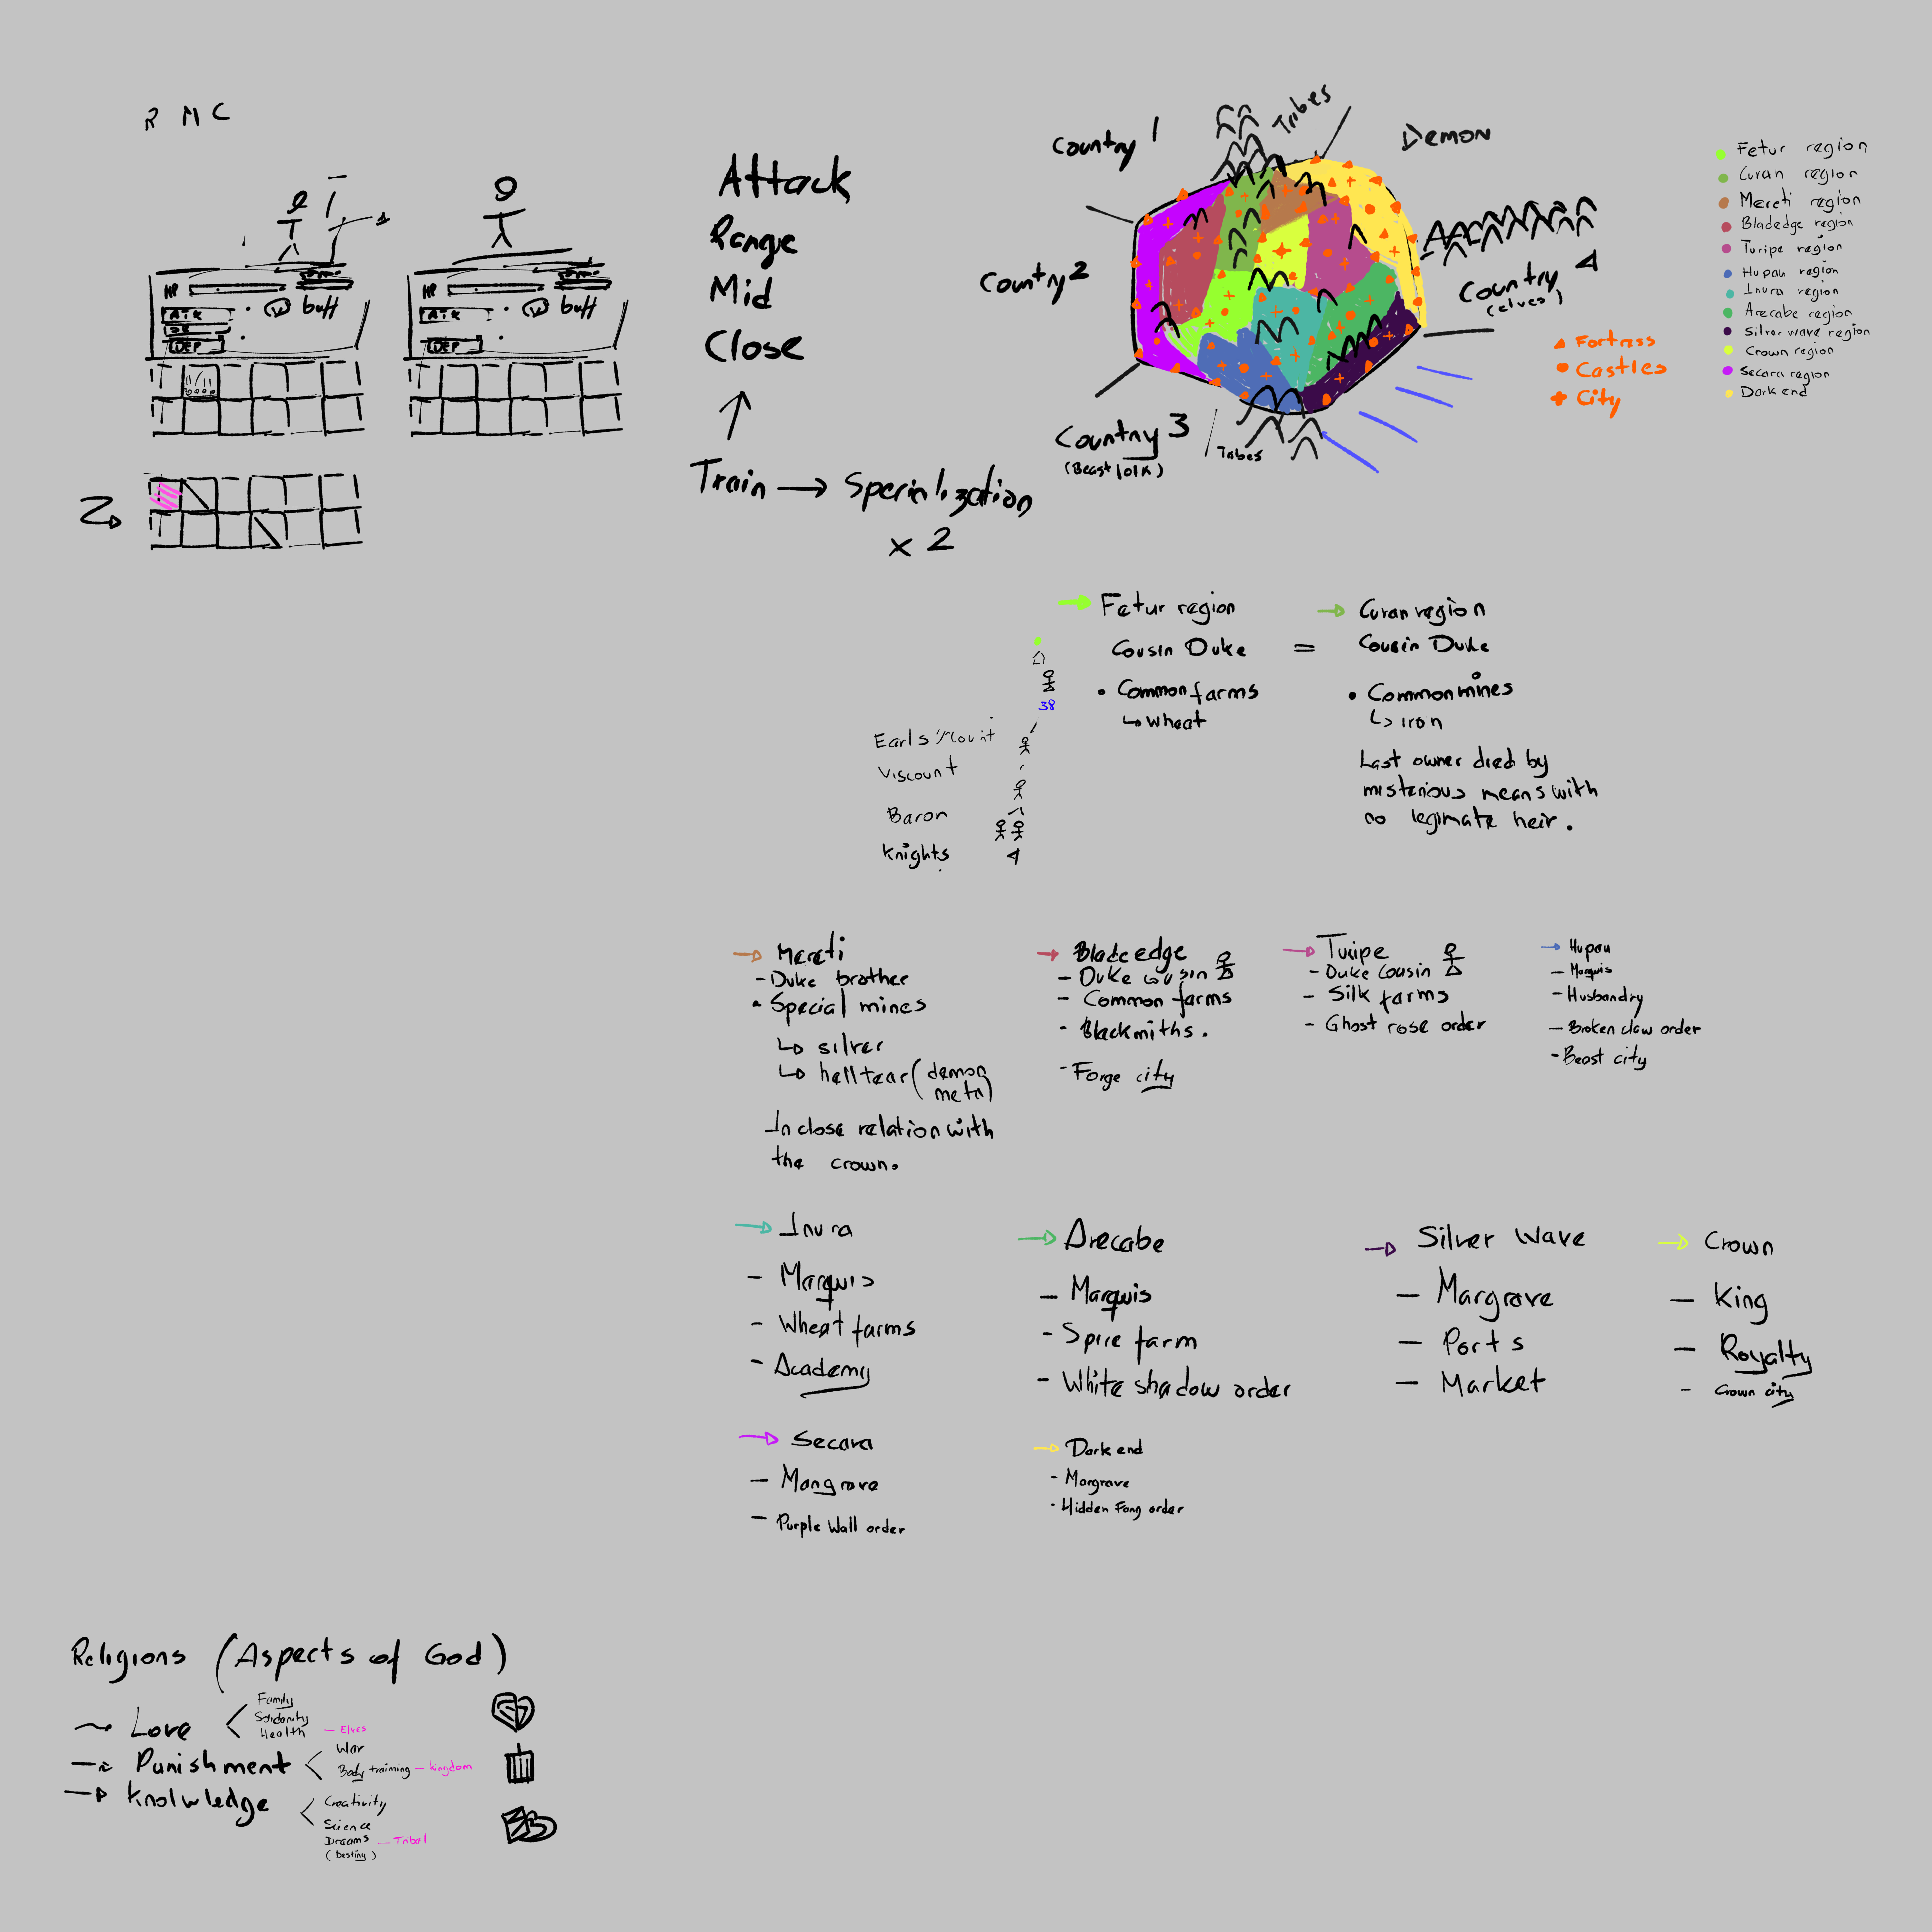 R M C
HP
ATK
DEF
buff
HP
ATK
DEF
buff
Attack
Range
Mid
Close
Train → Specialization
x 2
Country 1
Tribes
Demon
Country 2
Country 4
(elves)
Country 3
(Beast folk)
Tribes
Fortress
Castles
City
Fetur region
Curan region
Mereti region
Bladedge region
Turipe region
Hupau region
Inura region
Arecabe region
Silver wave region
Crown region
Secara region
Dark end
→ Fetur region
Cousin Duke =
• Common farms
↳ wheat
→ Curan region
Cousin Duke
• Common mines
↳ iron
Last owner died by
misterious means with
no legimate heir.
38
Earls/Count
Viscount
Baron
Knights
→ Mereti
- Duke brother
• Special mines
↳ silver
↳ helltear (demon
metal)
In close relation with
the crown.
→ Bladeedge
- Duke cousin
- Common farms
- Blackmiths.
- Forge city
→ Turipe
- Duke cousin
- Silk farms
- Ghost rose order
→ Hupau
- Marquis
- Husbandry
- Broken claw order
- Beast city
→ Inura
- Marquis
- Wheat farms
- Academy
→ Arecabe
- Marquis
- Spice farm
- White shadow order
→ Silver Wave
- Margrave
- Ports
- Market
→ Crown
- King
- Royalty
- Crown city
→ Secara
- Mangrave
- Purple Wall order
→ Dark end
- Margrave
- Hidden Fang order
Religions (Aspects of God)
→ Love <
Family
Solidarity
Health — Elves
→ Punishment <
War
Body training — Kingdom
→ Knolwledge <
Creativity
Science
Dreams — Tribal
(Destiny)